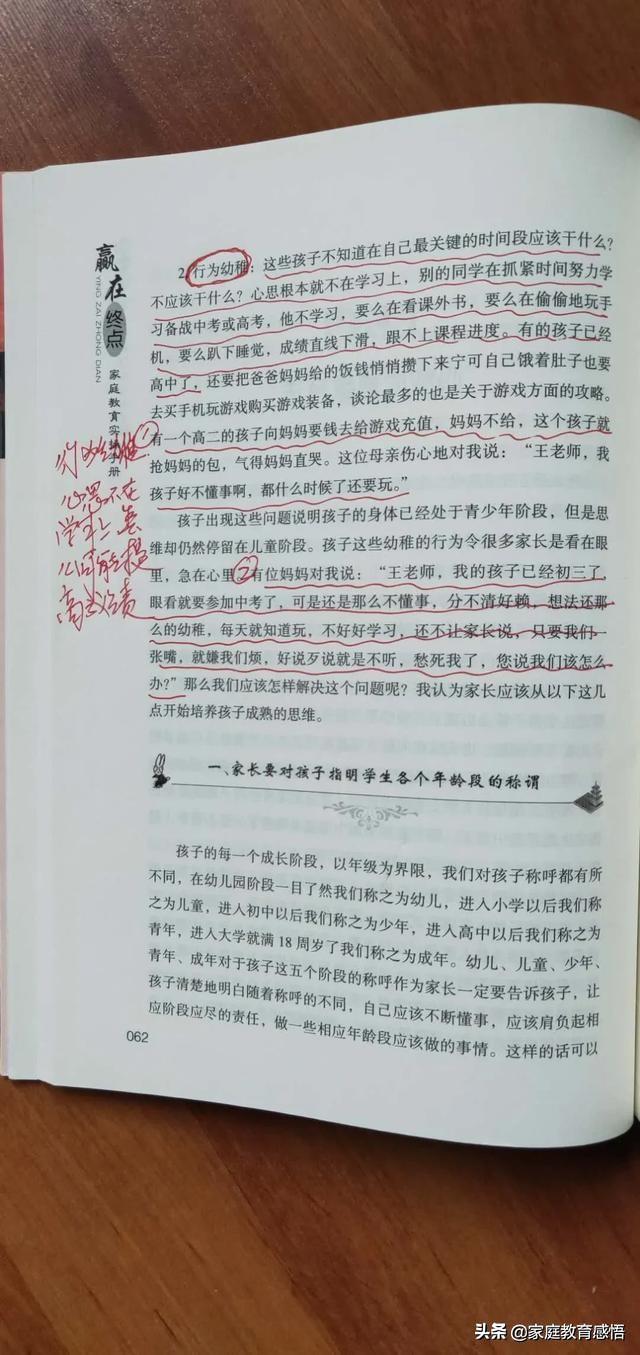 赢在终点
YING ZAI ZHONG DIAN
家庭教育实
册
2.行为幼稚：这些孩子不知道在自己最关键的时间段应该干什么？
不应该干什么？心思根本就不在学习上，别的同学在抓紧时间努力学
习备战中考或高考，他不学习，要么在看课外书，要么在偷偷地玩手
机，要么趴下睡觉，成绩直线下滑，跟不上课程进度。有的孩子已经
高中了，还要把爸爸妈妈给的饭钱悄悄攒下来宁可自己饿着肚子也要
去买手机玩游戏购买游戏装备，谈论最多的也是关于游戏方面的攻略。
有一个高二的孩子向妈妈要钱去给游戏充值，妈妈不给，这个孩子就
抢妈妈的包，气得妈妈直哭。这位母亲伤心地对我说：“王老师，我
孩子好不懂事啊，都什么时候了还要玩。”
孩子出现这些问题说明孩子的身体已经处于青少年阶段，但是思
维却仍然停留在儿童阶段。孩子这些幼稚的行为令很多家长是看在眼
里，急在心里②有位妈妈对我说：“王老师，我的孩子已经初三了，
眼看就要参加中考了，可是还是那么不懂事，分不清好赖，想法还那
么的幼稚，每天就知道玩，不好好学习，还不让家长说，只要我们一
张嘴，就嫌我们烦，好说歹说就是不听，愁死我了，您说我们该怎么
办？”那么我们应该怎样解决这个问题呢？我认为家长应该从以下这几
点开始培养孩子成熟的思维。
①
心思不在
学习上，怎
么可能提
高成绩
一、家长要对孩子指明学生各个年龄段的称谓
孩子的每一个成长阶段，以年级为界限，我们对孩子称呼都有所
不同，在幼儿园阶段一目了然我们称之为幼儿，进入小学以后我们称
之为儿童，进入初中以后我们称之为少年，进入高中以后我们称之为
青年，进入大学就满 18 周岁了我们称之为成年。幼儿、儿童、少年、
青年、成年对于孩子这五个阶段的称呼作为家长一定要告诉孩子，让
孩子清楚地明白随着称呼的不同，自己应该不断懂事，应该肩负起相
应阶段应尽的责任，做一些相应年龄段应该做的事情。这样的话可以
062
头条 @家庭教育感悟